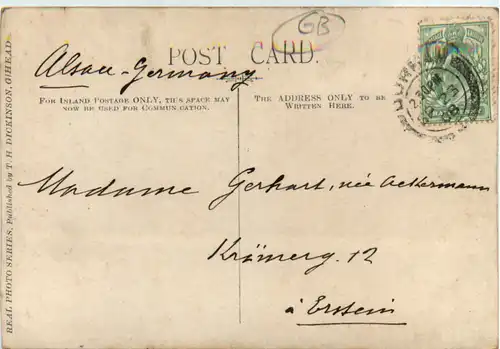 GB
POST CARD.
Alsace-Germany
FOR INLAND POSTAGE ONLY, THIS SPACE MAY
NOW BE USED FOR COMMUNICATION.
THE ADDRESS ONLY TO BE
WRITTEN HERE.
Madame Gerhart, née Ackermann
Krämerg. 12
à Erstein
REAL PHOTO SERIES. Published by T. H. DICKINSON, G'HEAD